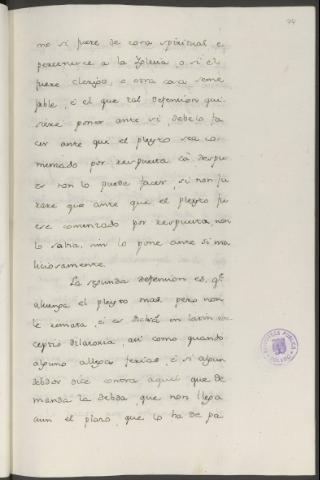 74
mo si fuere de cosa spiritual e
pertenesce a la Iglesia, o si el
fuere clerigo, o otra cosa seme
jable, é el que tal defension qui
siere poner ante si, debelo fa
cer ante que el pleyto sea co
menzado por respuesta cá despu
es non lo puede facer, si non ju
rare que ante que el pleyto fu
ese comenzado por respuesta, non
lo sabia, nin lo pone ante si ma
liciosamente.
La segunda defension es, qe
aluenga el pleyto mas, pero non
le remata, é es dicha en latin ex
ceptio dilatoria, asi como quando
alguno allega ferias, é si algun
debdor dice contra aquel que de
manda la debda, que non llega
aun el plazo, que lo ha de pa
BIBLIOTECA PUBLICA
TOLEDO